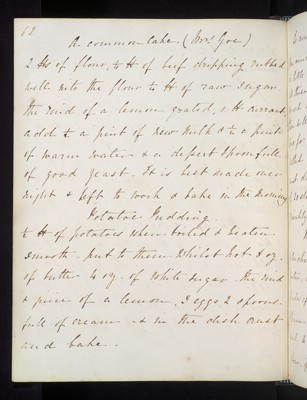 62
A common Cake. (Mrs Goe)
2 lbs of flour, ½ lb of beef dripping rubbed
well into the flour ½ lb of raw sugar
the rind of a lemon grated, 1 lb currants
add ½ a pint of new milk & ½ a pint
of warm water & a desert spoonfull
of good yeast. It is best made over
night & left to work & bake in the morning
Potatoe Pudding.
½ lb of potatoes when boiled & beaten
smooth. put to them whilst hot oz.
of butter 4 oz. of white sugar the rind
& juice of a lemon, 3 eggs 2 spoons
full of cream & in the dish crust
and bake.